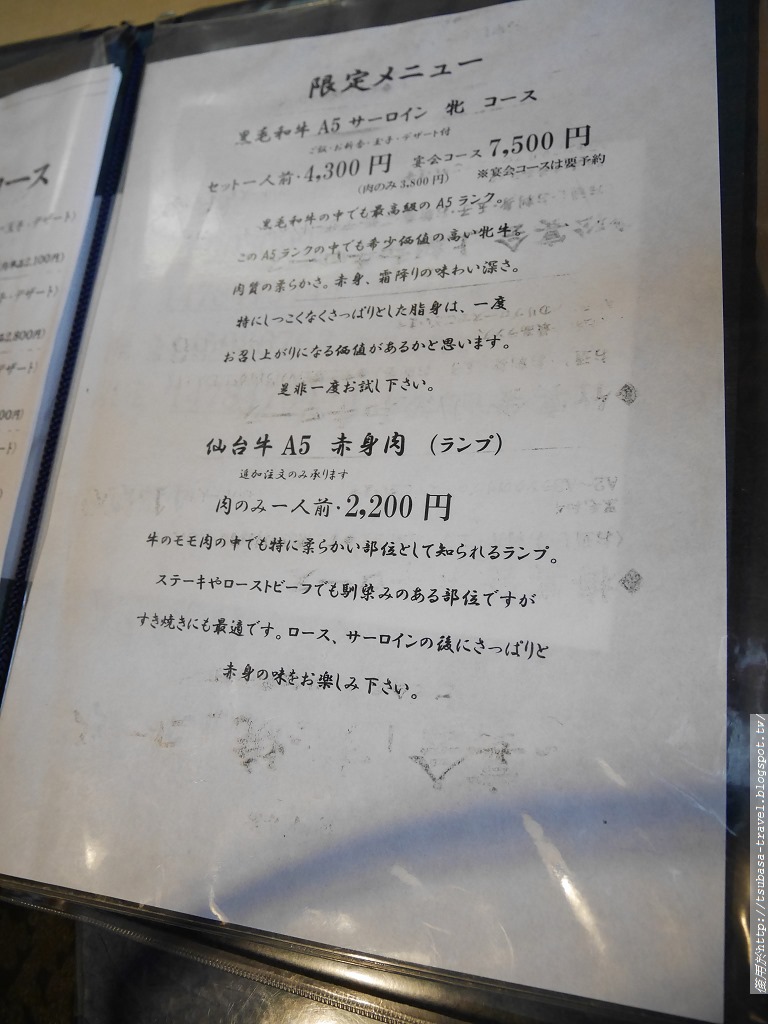 限定メニュー
黒毛和牛 A5 サーロイン 牝 コース
ご飯・お新香・玉子・デザート付
セット一人前・4,300 円 宴会コース 7,500 円
(肉のみ 3,800 円) ※宴会コースは要予約
黒毛和牛の中でも最高級の A5 ランク。
この A5 ランクの中でも希少価値の高い牝牛。
肉質の柔らかさ。赤身、霜降りの味わい深さ。
特にしつこくなくさっぱりとした脂身は、一度
お召し上がりになる価値があるかと思います。
是非一度お試し下さい。
仙台牛 A5 赤身肉 (ランプ)
追加注文のみ承ります
肉のみ一人前・2,200 円
牛のモモ肉の中でも特に柔らかい部位として知られるランプ。
ステーキやローストビーフでも馴染みのある部位ですが
すき焼きにも最適です。ロース、サーロインの後にさっぱりと
赤身の味をお楽しみ下さい。
コース
玉子・デザート)
2,100円)
・デザート)
2,800円)
デザート)
00円)
ート)
円)
僅用於http://tsubasa-travel.blogspot.tw/